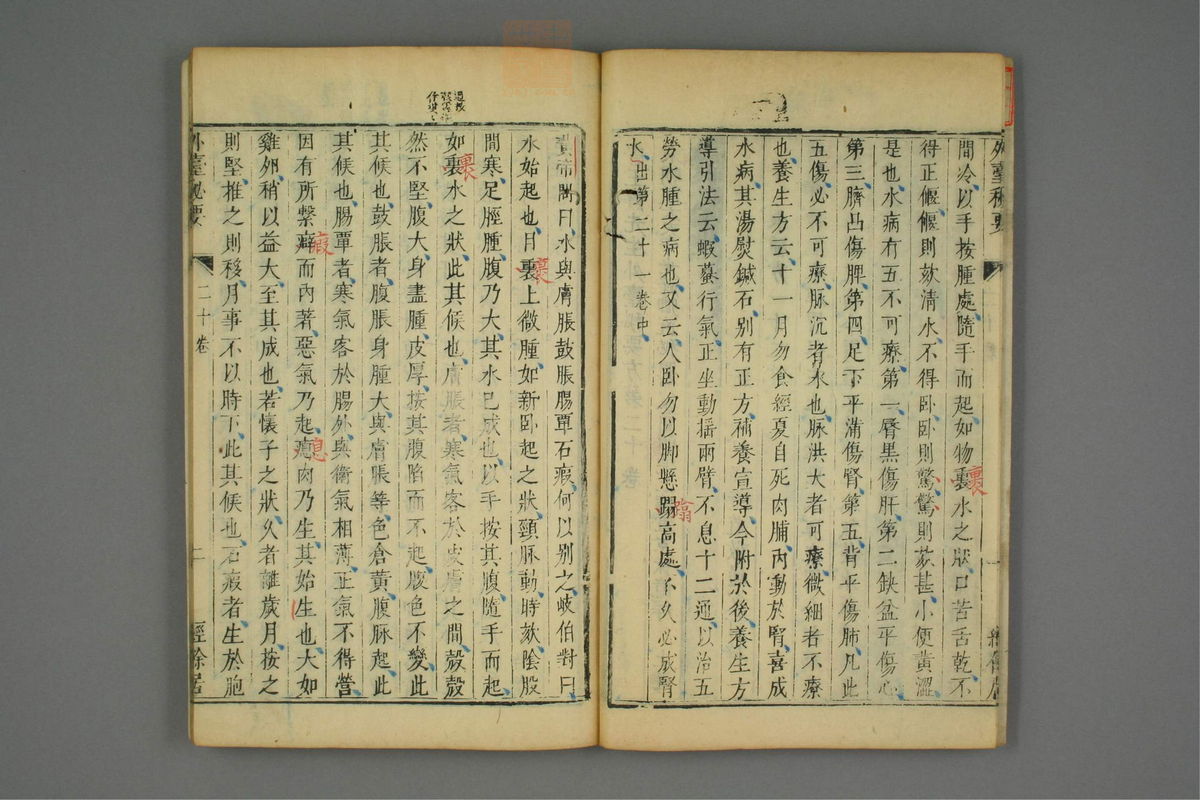 外臺秘要
間冷以手按腫處隨手而起如物裹水之狀口苦舌乾不
得正偃偃則欬清水不得卧卧則驚驚則欬甚小便黃澀
是也水病有五不可療第一脣黑傷肝第二缺盆平傷心
第三臍凸傷脾第四足下平滿傷腎第五背平傷肺凡此
五傷必不可療脉沉者水也脉洪大者可療微細者不療
也養生方云十一月勿食經夏自死肉脯內動於腎喜成
水病其湯熨鍼石別有正方補養宣導今附於後養生方
導引法云蝦蟇行氣正坐動搖兩臂不息十二通以治五
勞水腫之病也又云人卧勿以脚懸蹋高處不久必成腎
水出第二十一卷中
裹
蹹
黃帝問曰水與膚脹鼓脹腸覃石瘕何以別之岐伯對曰
水始起也目裏上微腫如新卧起之狀頸脉動時欬陰股
間寒足脛腫腹乃大其水已成也以手按其腹隨手而起
如裏水之狀此其候也膚脹者寒氣客於皮膚之間殼殼
然不堅腹大身盡腫皮厚按其腹陷而不起腹色不變此
其候也鼓脹者腹脹身腫大與膚脹等色倉黃腹脉起此
其候也腸覃者寒氣客於腸外與衛氣相薄正氣不得營
因有所繫癖而內著惡氣乃起瘜肉乃生其始生也大如
雞卵稍以益大至其成也若懷子之狀久者離歲月按之
則堅推之則移月事不以時下此其候也石瘕者生於胞
裹
裹
瘕
息
外臺秘要
二十卷
二
經餘居